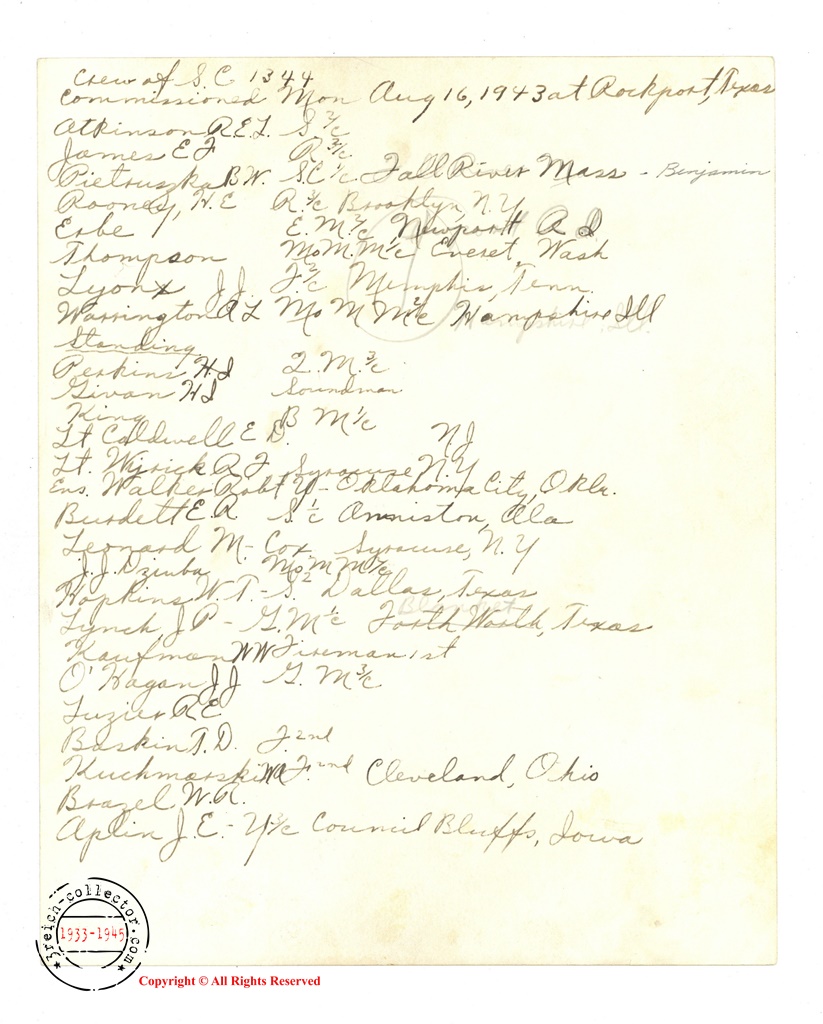 Crew of S C 1344
Commissioned Mon Aug 16, 1943 at Rockport, Texas
Atkinson R.E.L. S. 2/c
James E F R 3/c
Pietruszka B W. S.C 1/c Fall River Mass - Benjamin
Rooney, H. E R. 3/c Brooklyn, N. Y
Erbe E. M. 2/c Newport R I
Thompson Mo M. M 1/c Everet, Wash
Lyon J J. F 2/c Memphis, Tenn.
Warrington A L Mo M M 2/c Hampshire Ill
Standing
Perkins H I Q. M. 3/c
Givan H I Soundman
King B M 1/c
Lt Caldwell E D. N J
Lt. Wyrick R F Syracuse N. Y
Ens. Walker Robt Y - Oklahoma City, Okla.
Burdett E. R S. 1/c Anniston, Ala
Leonard M - Cox Syracuse, N. Y
J. J. Dziuba Mo M M
Hopkins W. T. - S. 2 Dallas, Texas
Lynch, J P - G. M 1/c Forth Worth, Texas
Kaufman W W Fireman 1st
O'Hagan J J G. M 3/c
Luzier R E
Baskin T. D. F. 2nd
Kuchmarski W A F. 2nd Cleveland, Ohio
Brazel W. R.
Aplin J. E. - Y 3/c Council Bluffs, Iowa
3reich-collector.com
1933-1945
Copyright © All Rights Reserved